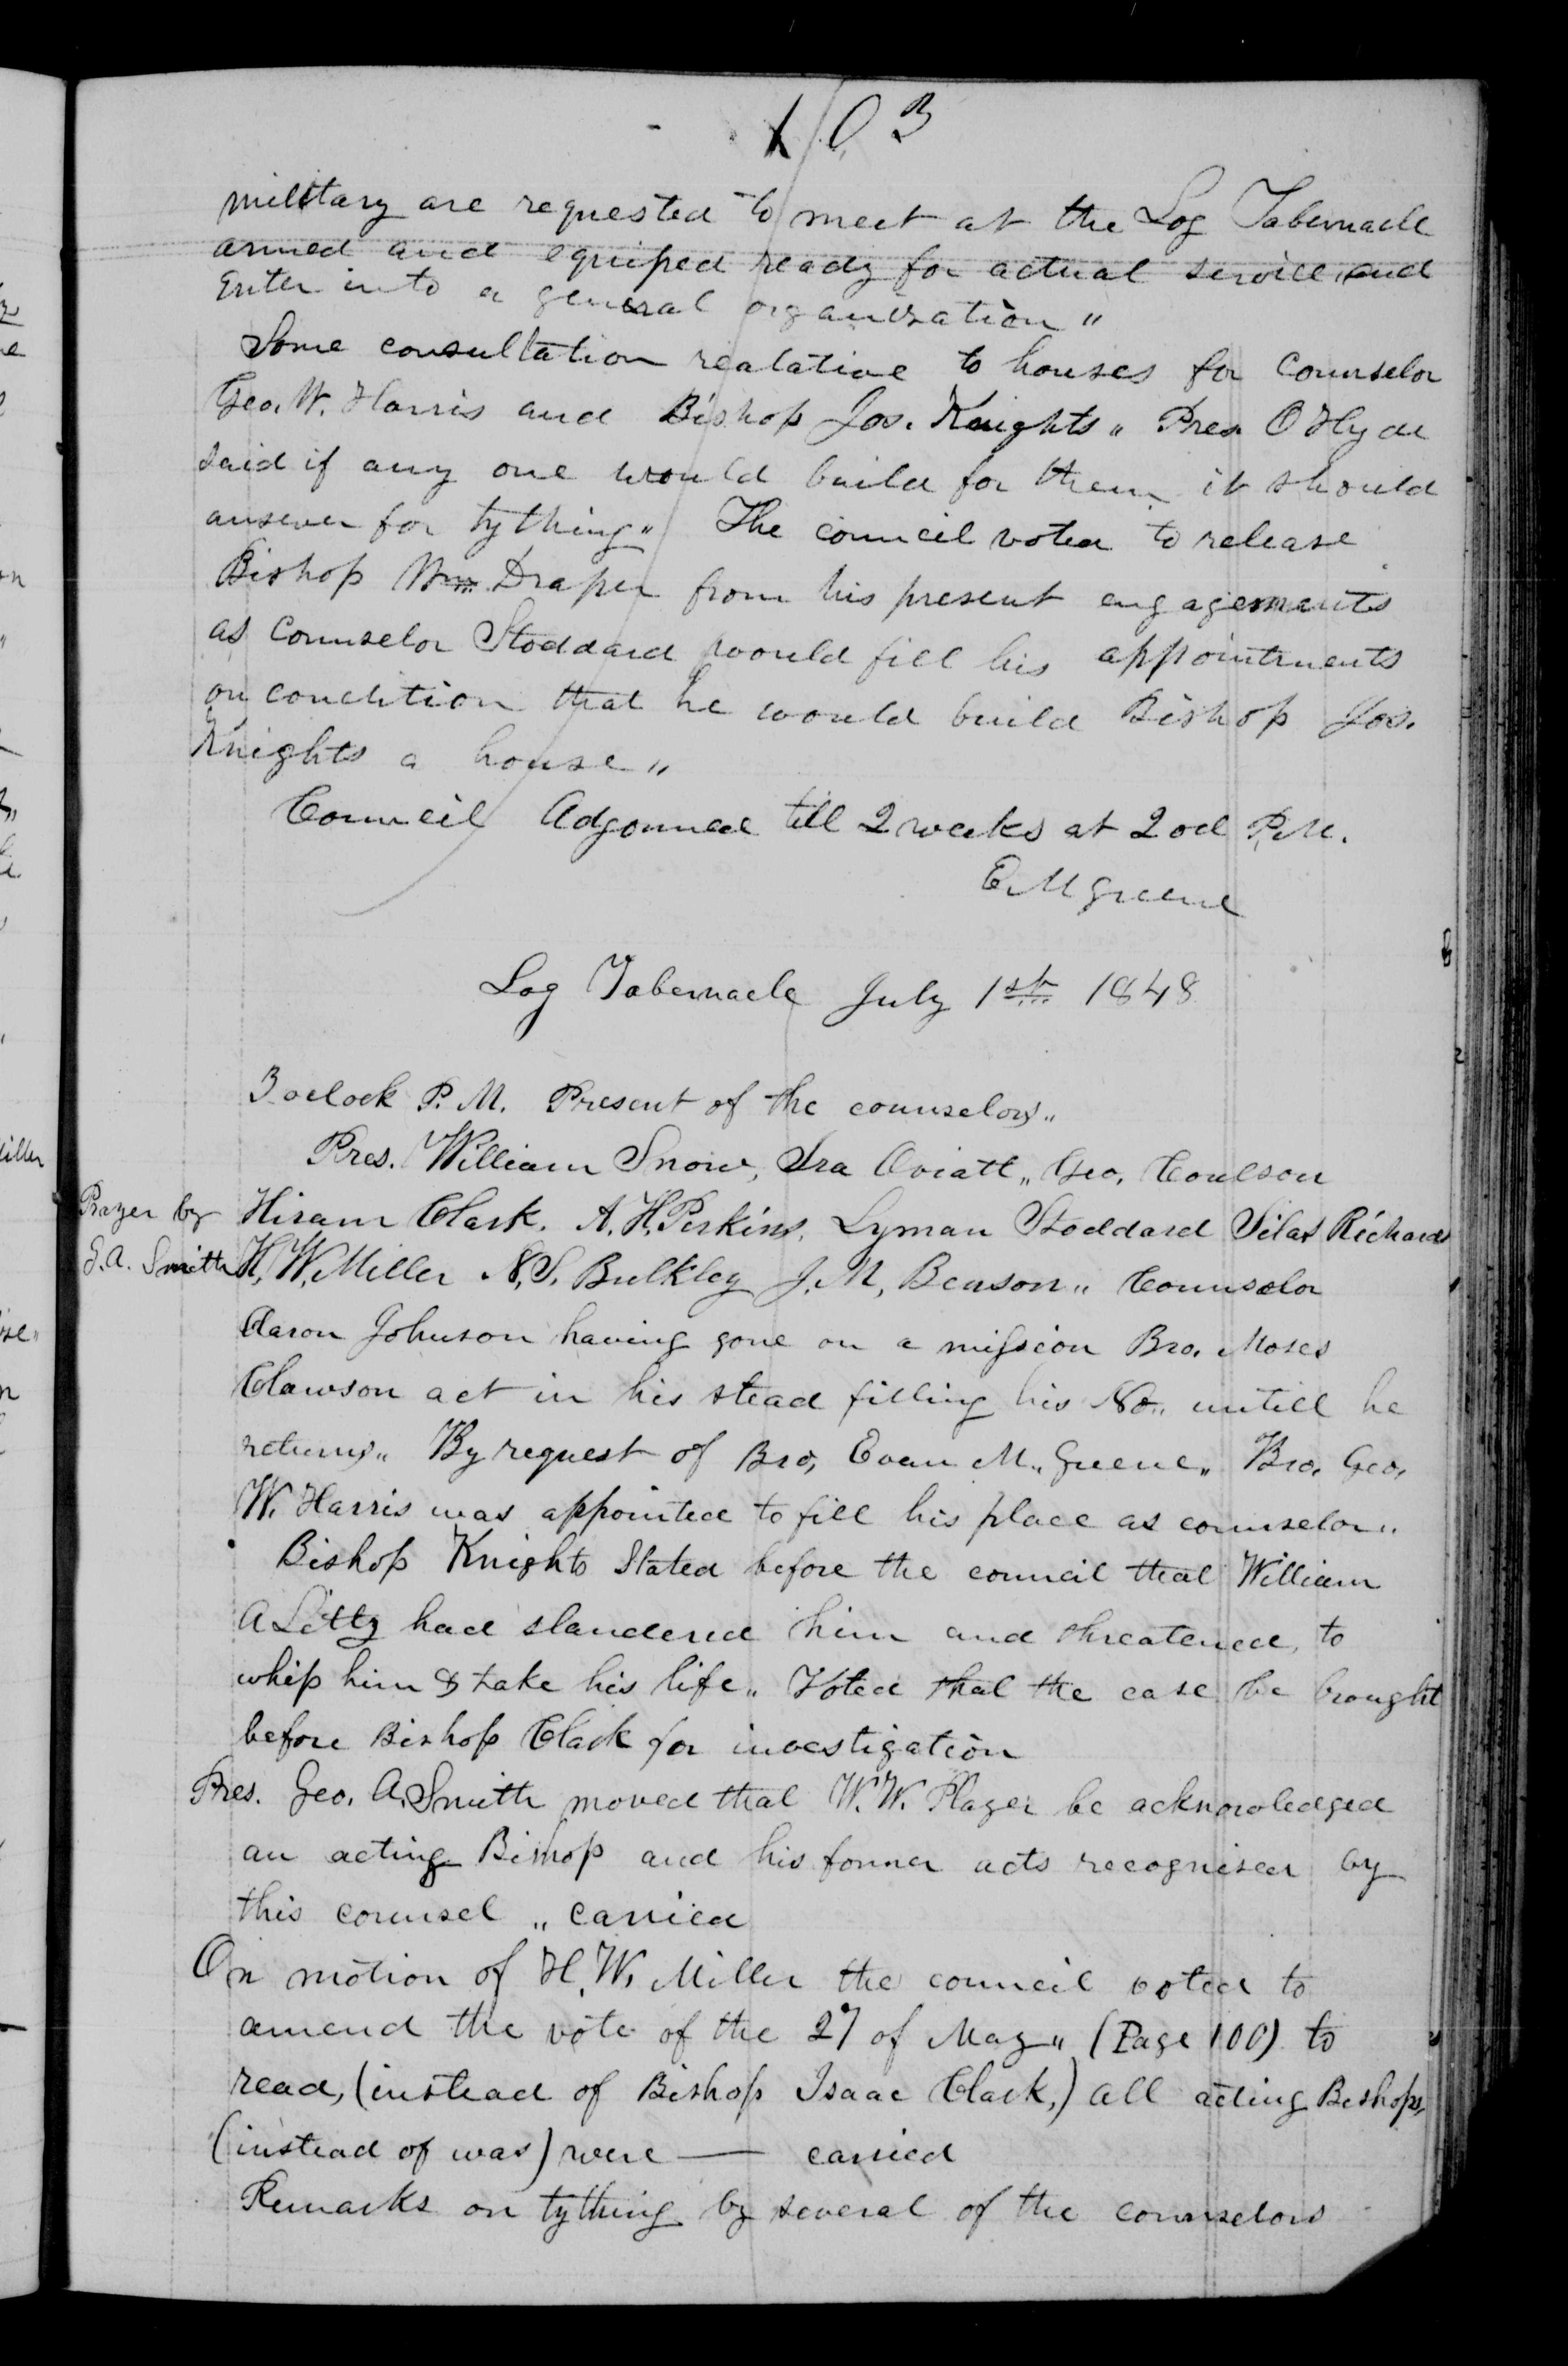 103
military are requested to meet at the Log Tabernacle
armed and equiped ready for actual service, and
enter into a general organization "
Some consultation realative to houses for Counselor
Geo. W. Harris and Bishop Jos. Knights " Pres O Hyde
said if any one would build for them it should
answer for tything " The council voted to release
Bishop Wm Draper from his present engagements
as Counselor Stoddard would fill his appointments
on condition that he would build Bishop Jos.
Knights a house "
Council Adjourned till 2 weeks at 2 ocl P.M.
E. M Greene
Log Tabernacle July 1st 1848
3 oclock P.M. Present of the counselors "
Pres. William Snow, Ira Oviatt " Geo. Coulson
Prayer by Hiram Clark. A. H. Perkins, Lyman Stoddard Silas Richards
G.A. Smith H. W. Miller N. S. Bulkley J. M, Benson " Counselor
Aaron Johnson having gone on a mission Bro. Moses
Clawson act in his stead filling his No " untill he
returns " By request of Bro, Evan M " Greene " Bro. Geo.
W. Harris was appointed to fill his place as counselor "
Bishop Knights Stated before the council that William
A had slandered him and threatened, to
whip him & take his life " Voted that the case be brought
before Bishop Clark for investigation
Pres. Geo. A. Smith moved that W. W. Player be acknowledged
an acting Bishop and his former acts recognised by
this counsel " carried
On motion of H. W. Miller the council voted to
amend the vote of the 27 of May " (Page 100) to
read, (instead of Bishop Isaac Clark,) all acting Bishops,
(instead of was) were — carried
Remarks on tything by several of the counselors